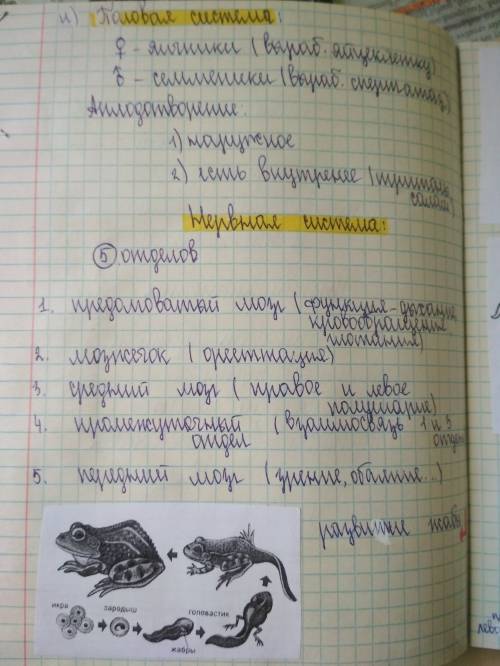 и) Половая система:
♀ - яичники (выраб. яйцеклетку)
♂ - семменики (выраб. сперматоз)
Аплодатворение:
1) наружное
2) есть внутренее (тритоны,
салам)
Нервная система:
5 отделов
1. продомоватый мозг (функция - дыхание,
кровообращение
питания)
2. мозжечок (ореетнация)
3. средний мозг (правое и левое
полушарие)
4. промежуточный (взаимосвязь 1 и 3
отдел отдел
5. передний мозг (зрение, обаяние...)
развитие жабы
икра зародыш головастик
жабры